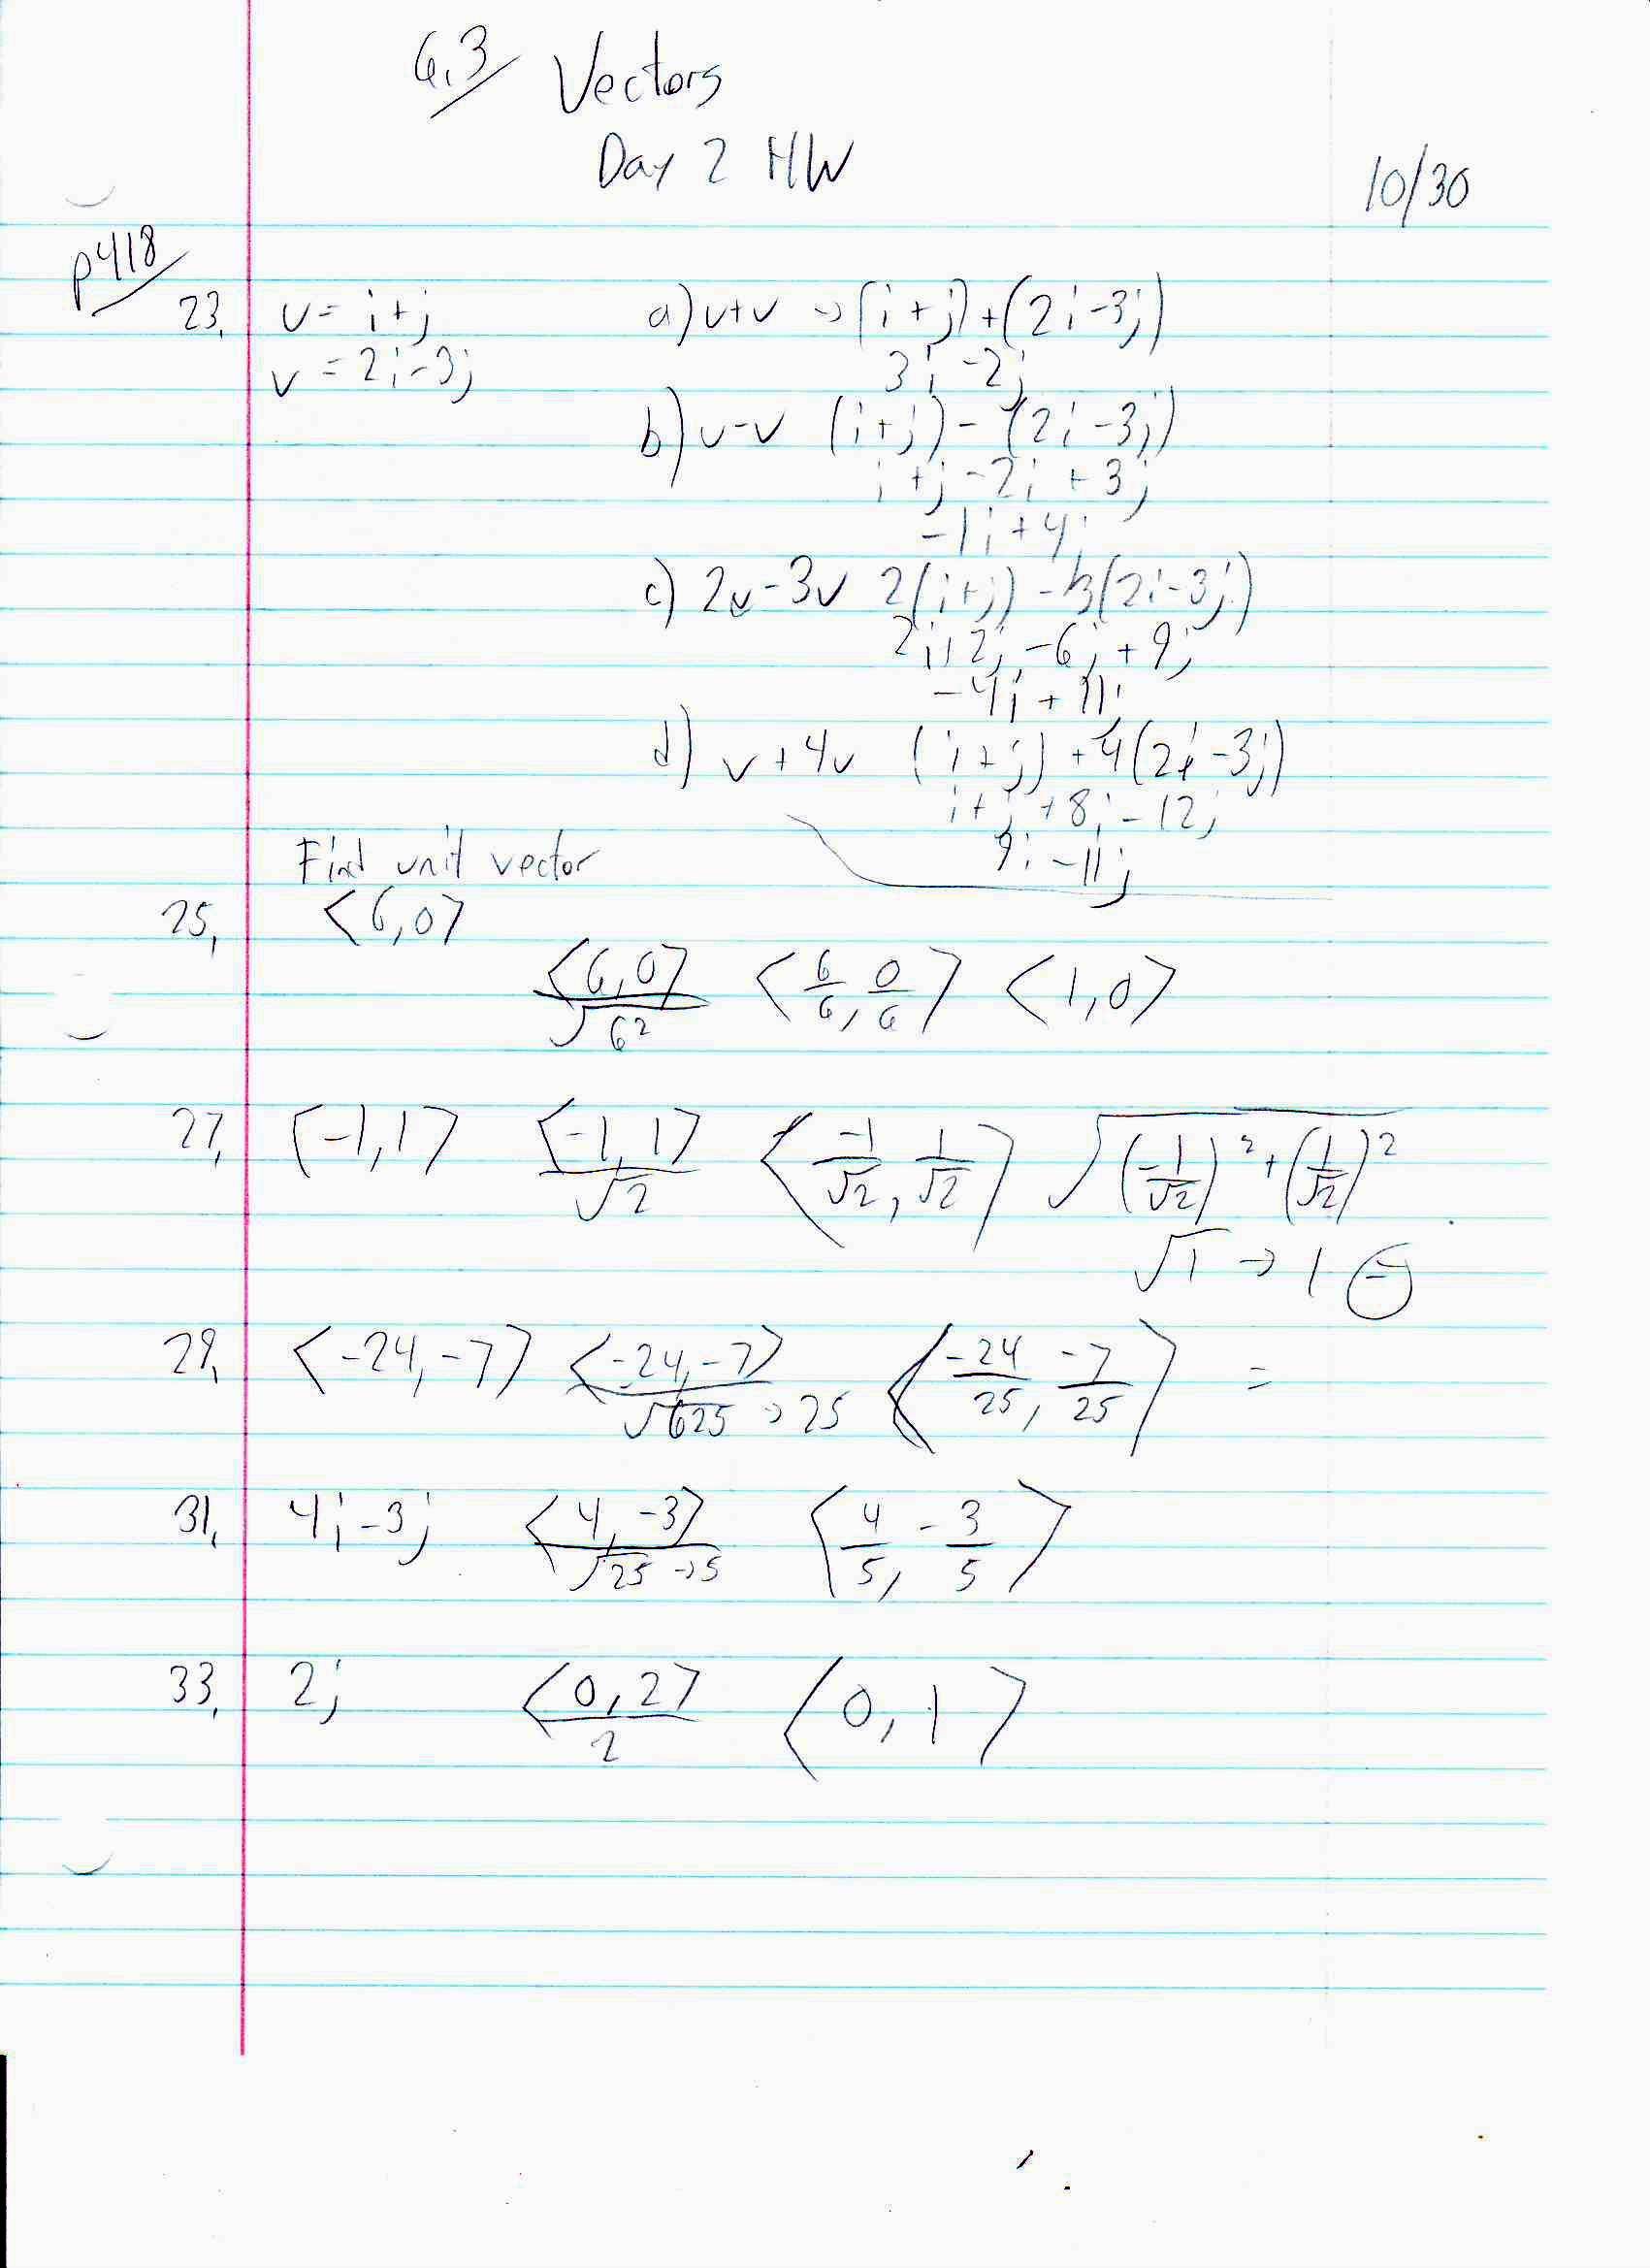 6.3 Vectors
Day 2 HW
10/30
p418
23. u = i+j a) u+v → (i+j)+(2i-3j)
v = 2i-3j 3i-2j
b) u-v (i+j)-(2i-3j)
i+j-2i+3j
-1i+4j
c) 2u-3v 2(i+j)-3(2i-3j)
2i+2j-6i+9j
-4i+11j
d) v+4v (i+j)+4(2i-3j)
i+j+8i-12j
9i-11j
Find unit vector
25. <6,0>
<6,0>/√6² <6/6, 0/6> <1,0>
27. <-1,1> <-1,1>/√2 <-1/√2, 1/√2> √((-1/√2)²+(1/√2)²)
√1 → 1
29. <-24,-7> <-24,-7>/√625→25 <-24/25, -7/25> =
31. 4i-3j <4,-3>/√25→5 <4/5, -3/5>
33. 2j <0,2>/2 <0,1>